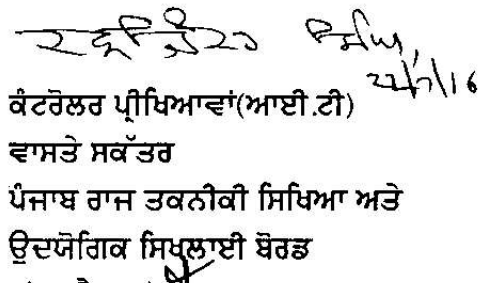 22/7/16
ਕੰਟਰੋਲਰ ਪ੍ਰੀਖਿਆਵਾਂ(ਆਈ.ਟੀ)
ਵਾਸਤੇ ਸਕੱਤਰ
ਪੰਜਾਬ ਰਾਜ ਤਕਨੀਕੀ ਸਿਖਿਆ ਅਤੇ
ਉਦਯੋਗਿਕ ਸਿਖਲਾਈ ਬੋਰਡ